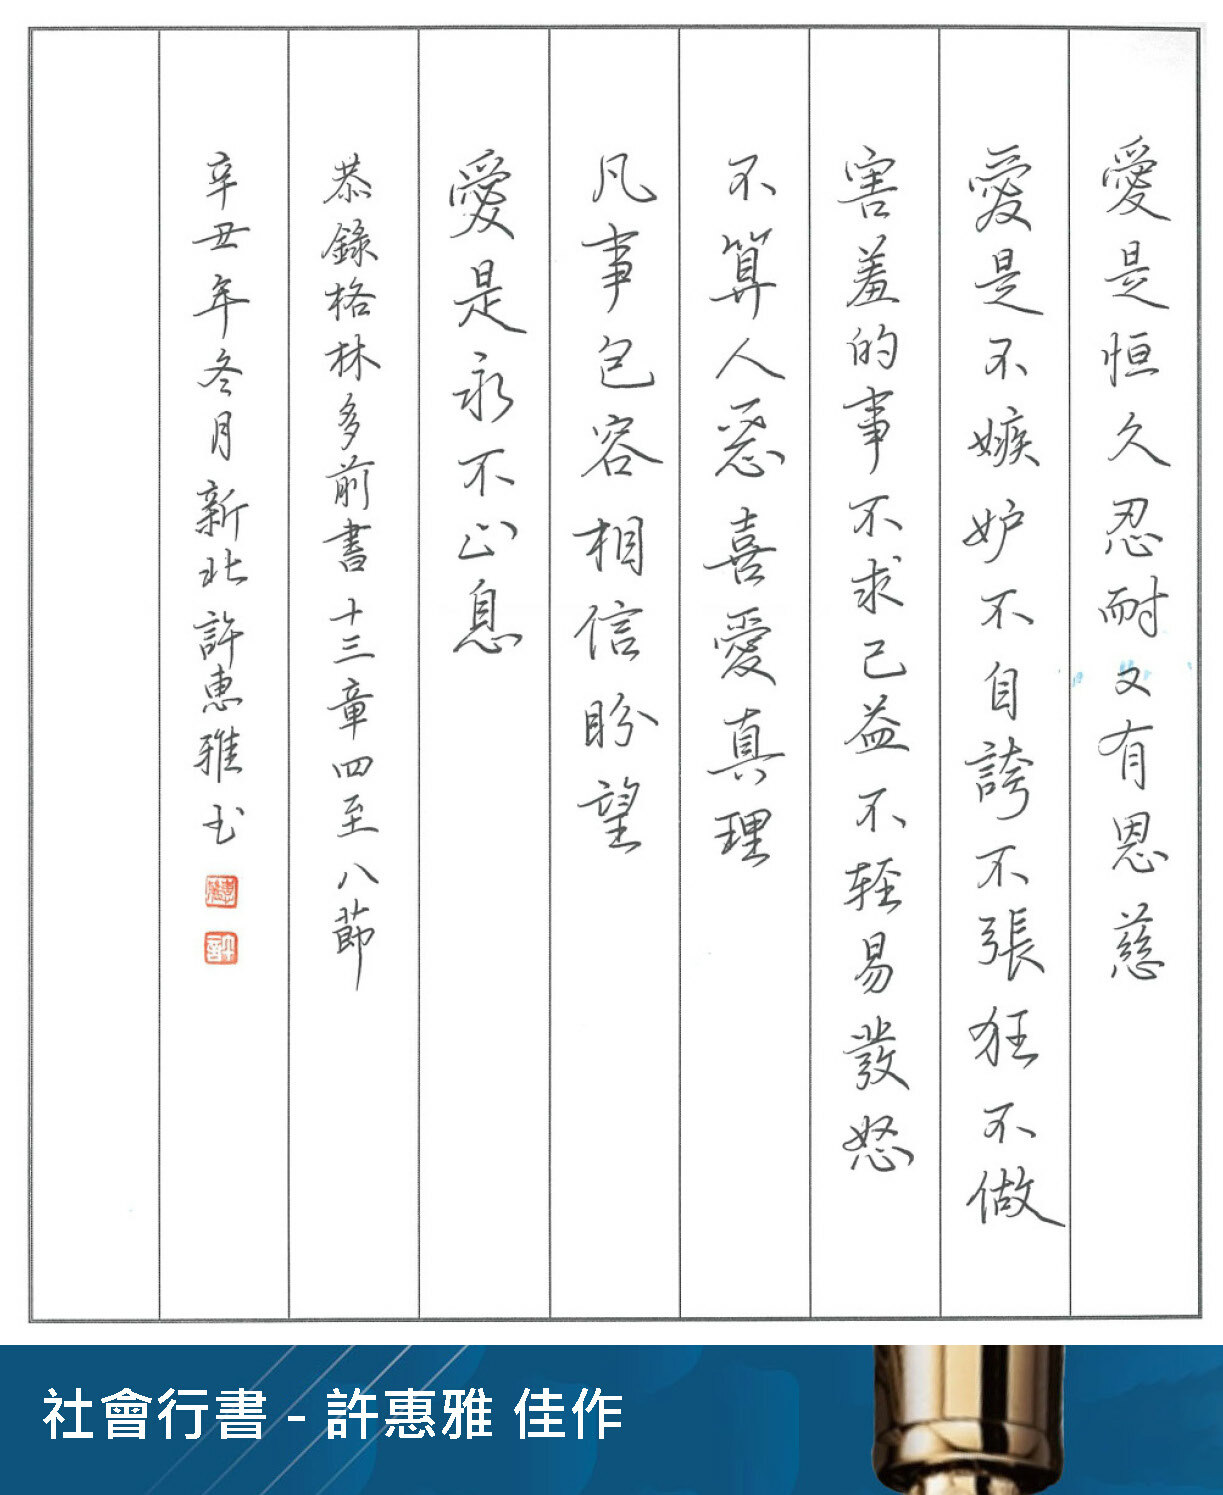 愛是恒久忍耐又有恩慈
愛是不嫉妒不自誇不張狂不做
害羞的事不求己益不轻易發怒
不算人惡喜愛真理
凡事包容相信盼望
愛是永不止息
恭錄格林多前書十三章四至八節
辛丑年冬月新北許惠雅书
社會行書 - 許惠雅 佳作